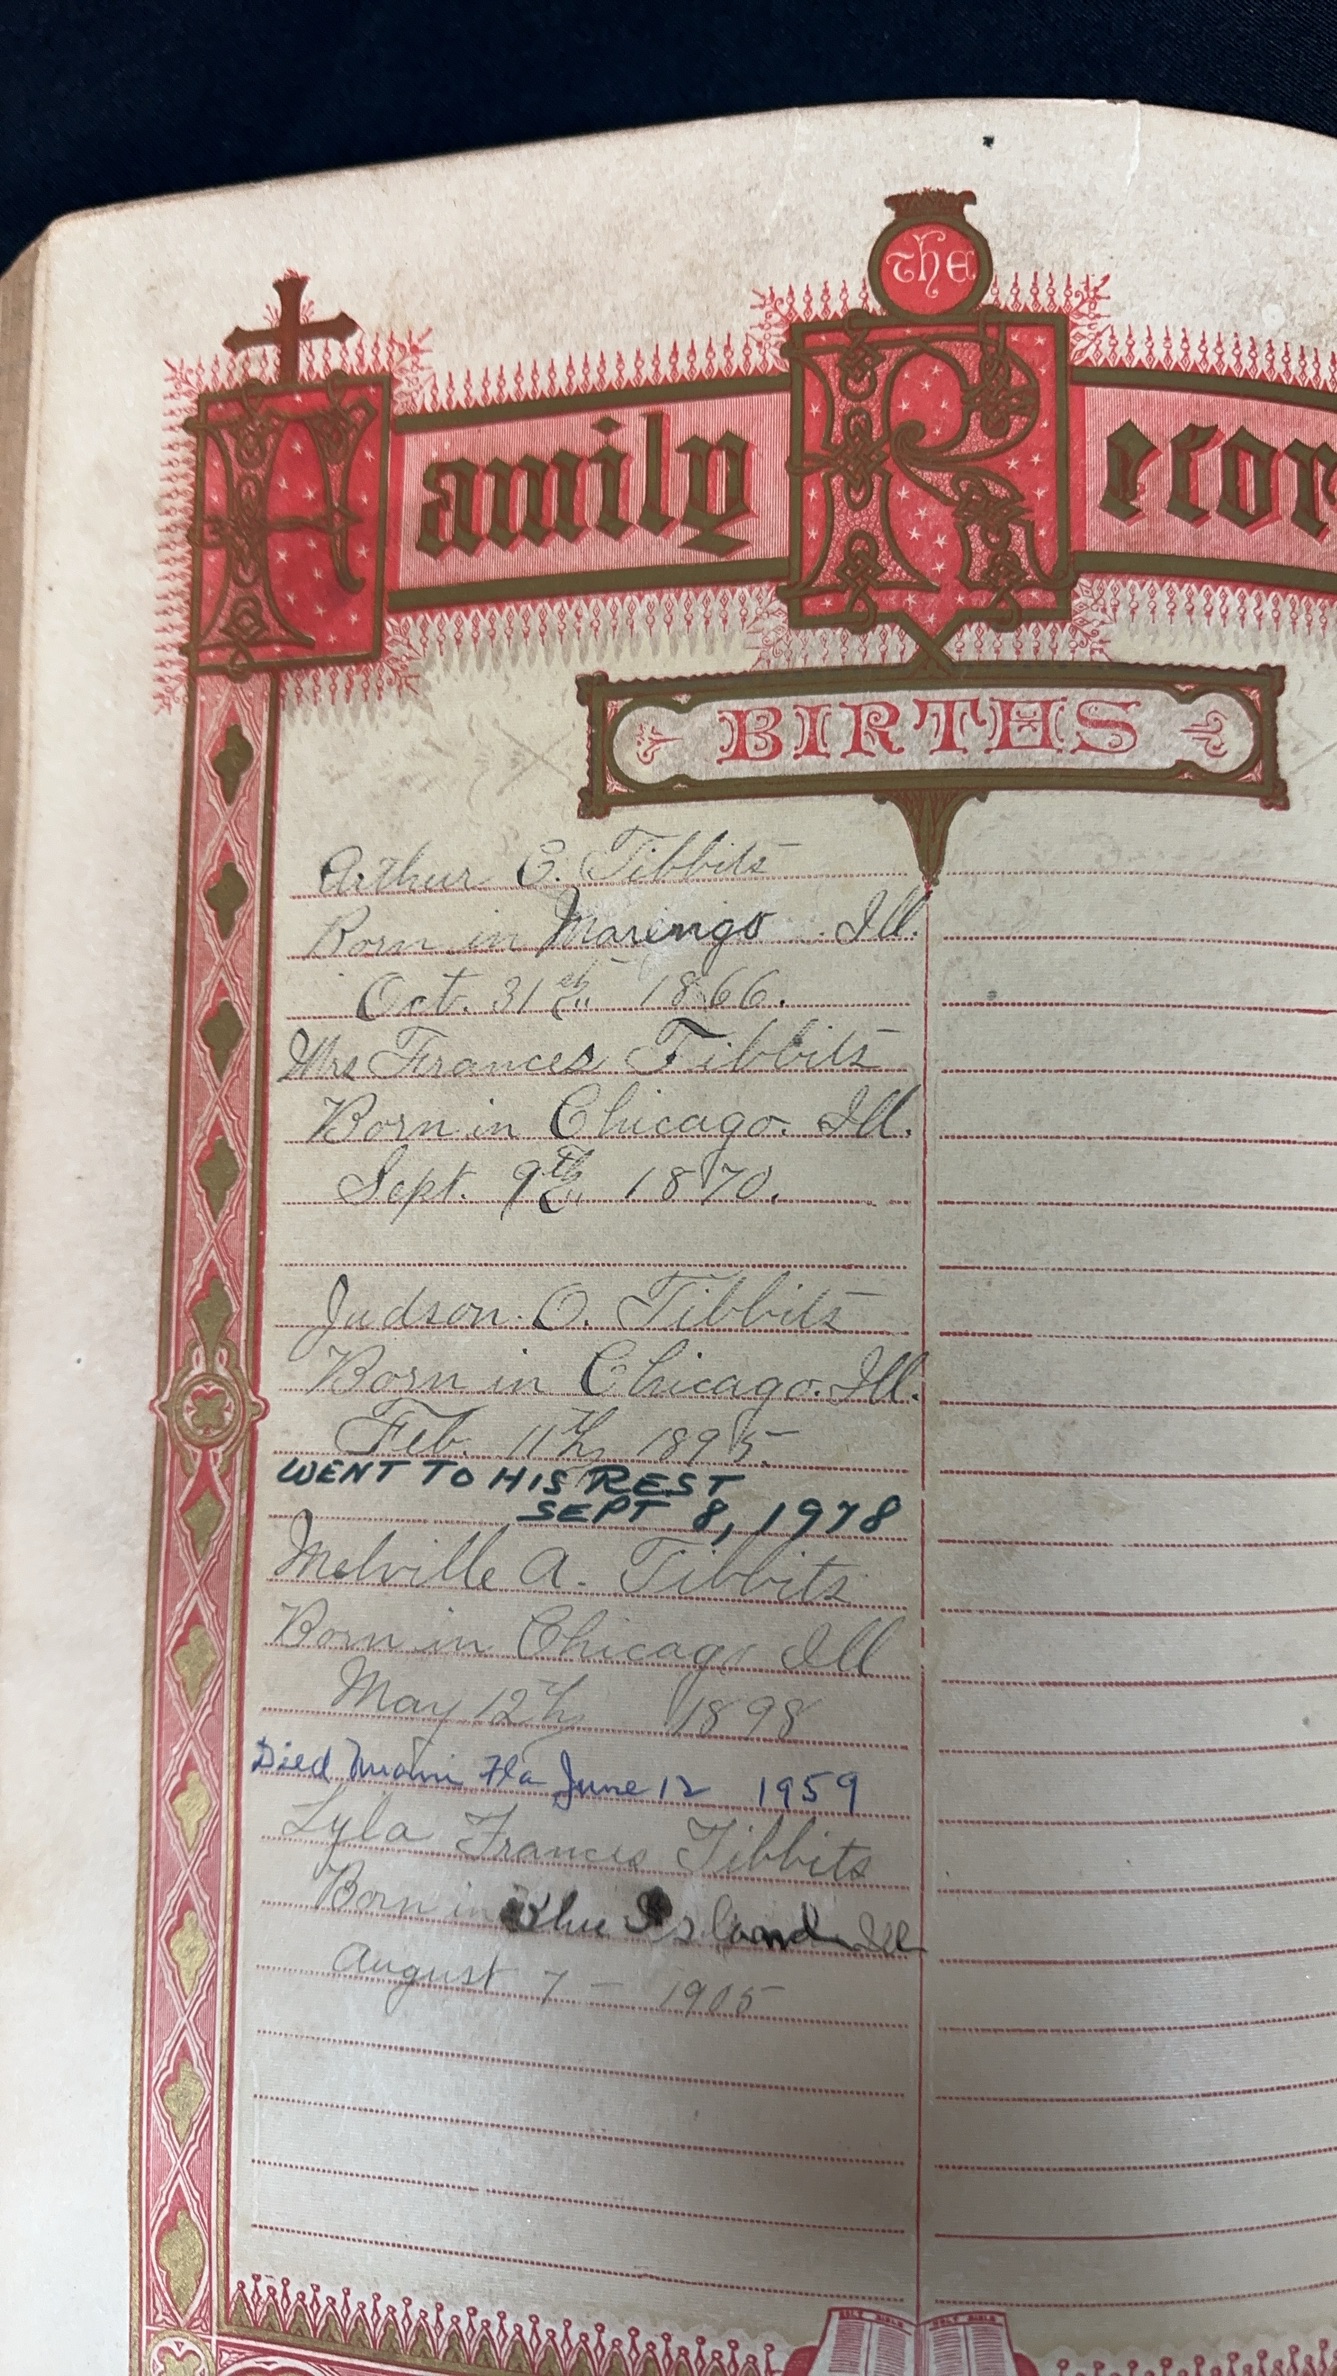 The
Family Recor
BIRTHS
Arthur C. Tibbits
Born in Marengo Ill.
Oct. 31st 1866.
Mrs Frances Tibbits
Born in Chicago. Ill.
Sept. 9th 1870.
Judson. O. Tibbits
Born in Chicago. Ill.
Feb. 11th 1895.
WENT TO HIS REST
SEPT 8, 1978
Melville A. Tibbits
Born in Chicago Ill
May 12th 1898
Died Miami Fla June 12 1959
Lyla Frances Tibbits
Born in Blue Island Ill
August 7 - 1905
HOLY BIBLE HOLY BIBLE